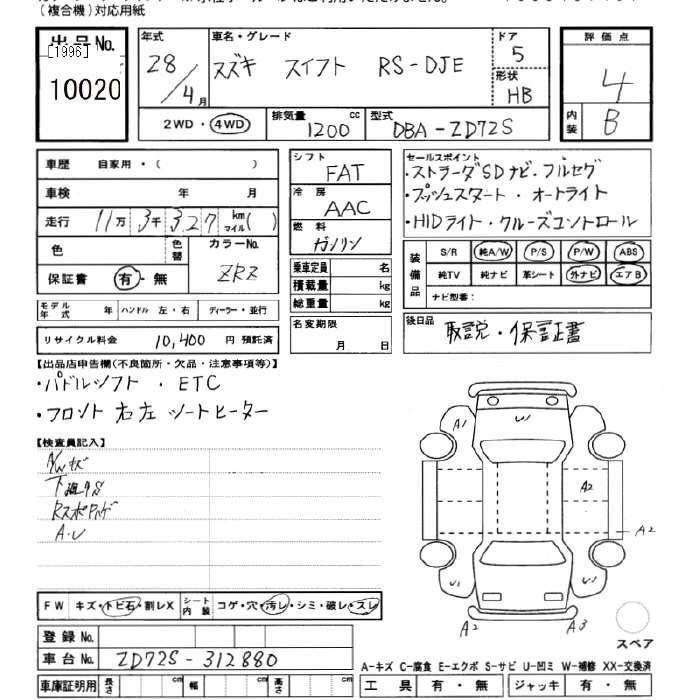 (複合機)対応用紙
出品No.
[1996]
10020
年式
28年
4月
車名・グレード
スズキ スイフト RS-DJE
ドア
5
形状
HB
評価点
4
内装
B
2WD・4WD
排気量
1200 cc
型式
DBA-ZD72S
車歴 自家用・( )
車検 年 月
走行 11万 3千 327 km マイル( )
色
色替
カラーNo.
ZRZ
保証書 有・無
モデル年式 年 ハンドル 左・右 ディーラー・並行
リサイクル料金 10,400 円 預託済
シフト
FAT
冷房
AAC
燃料
ガソリン
乗車定員 名
積載量 kg
総重量 kg
名変期限
月 日
セールスポイント
・ストラーダSDナビ・フルセグ
・プッシュスタート・オートライト
・HIDライト・クルーズコントロール
装備品
S/R 純A/W P/S P/W ABS
純TV 純ナビ 革シート 外ナビ エアB
ナビ型番:
後日品
取説・保証書
【出品店申告欄(不良箇所・欠品・注意事項等)】
・パドルシフト・ETC
・フロント右左シートヒーター
【検査員記入】
A/Wキズ
A・U
FW キズ・トビ石・割レX
シート内装 コゲ・穴・汚レ・シミ・破レ・スレ
登録No.
車台No. ZD72S-312880
車庫証明用 長さ cm 幅 cm 高さ cm
A1
U1
A2
A2
U1
U1
A2
A3
スペア
A-キズ C-腐食 E-エクボ S-サビ U-凹ミ W-補修 XX-交換済
工具 有・無 ジャッキ 有・無